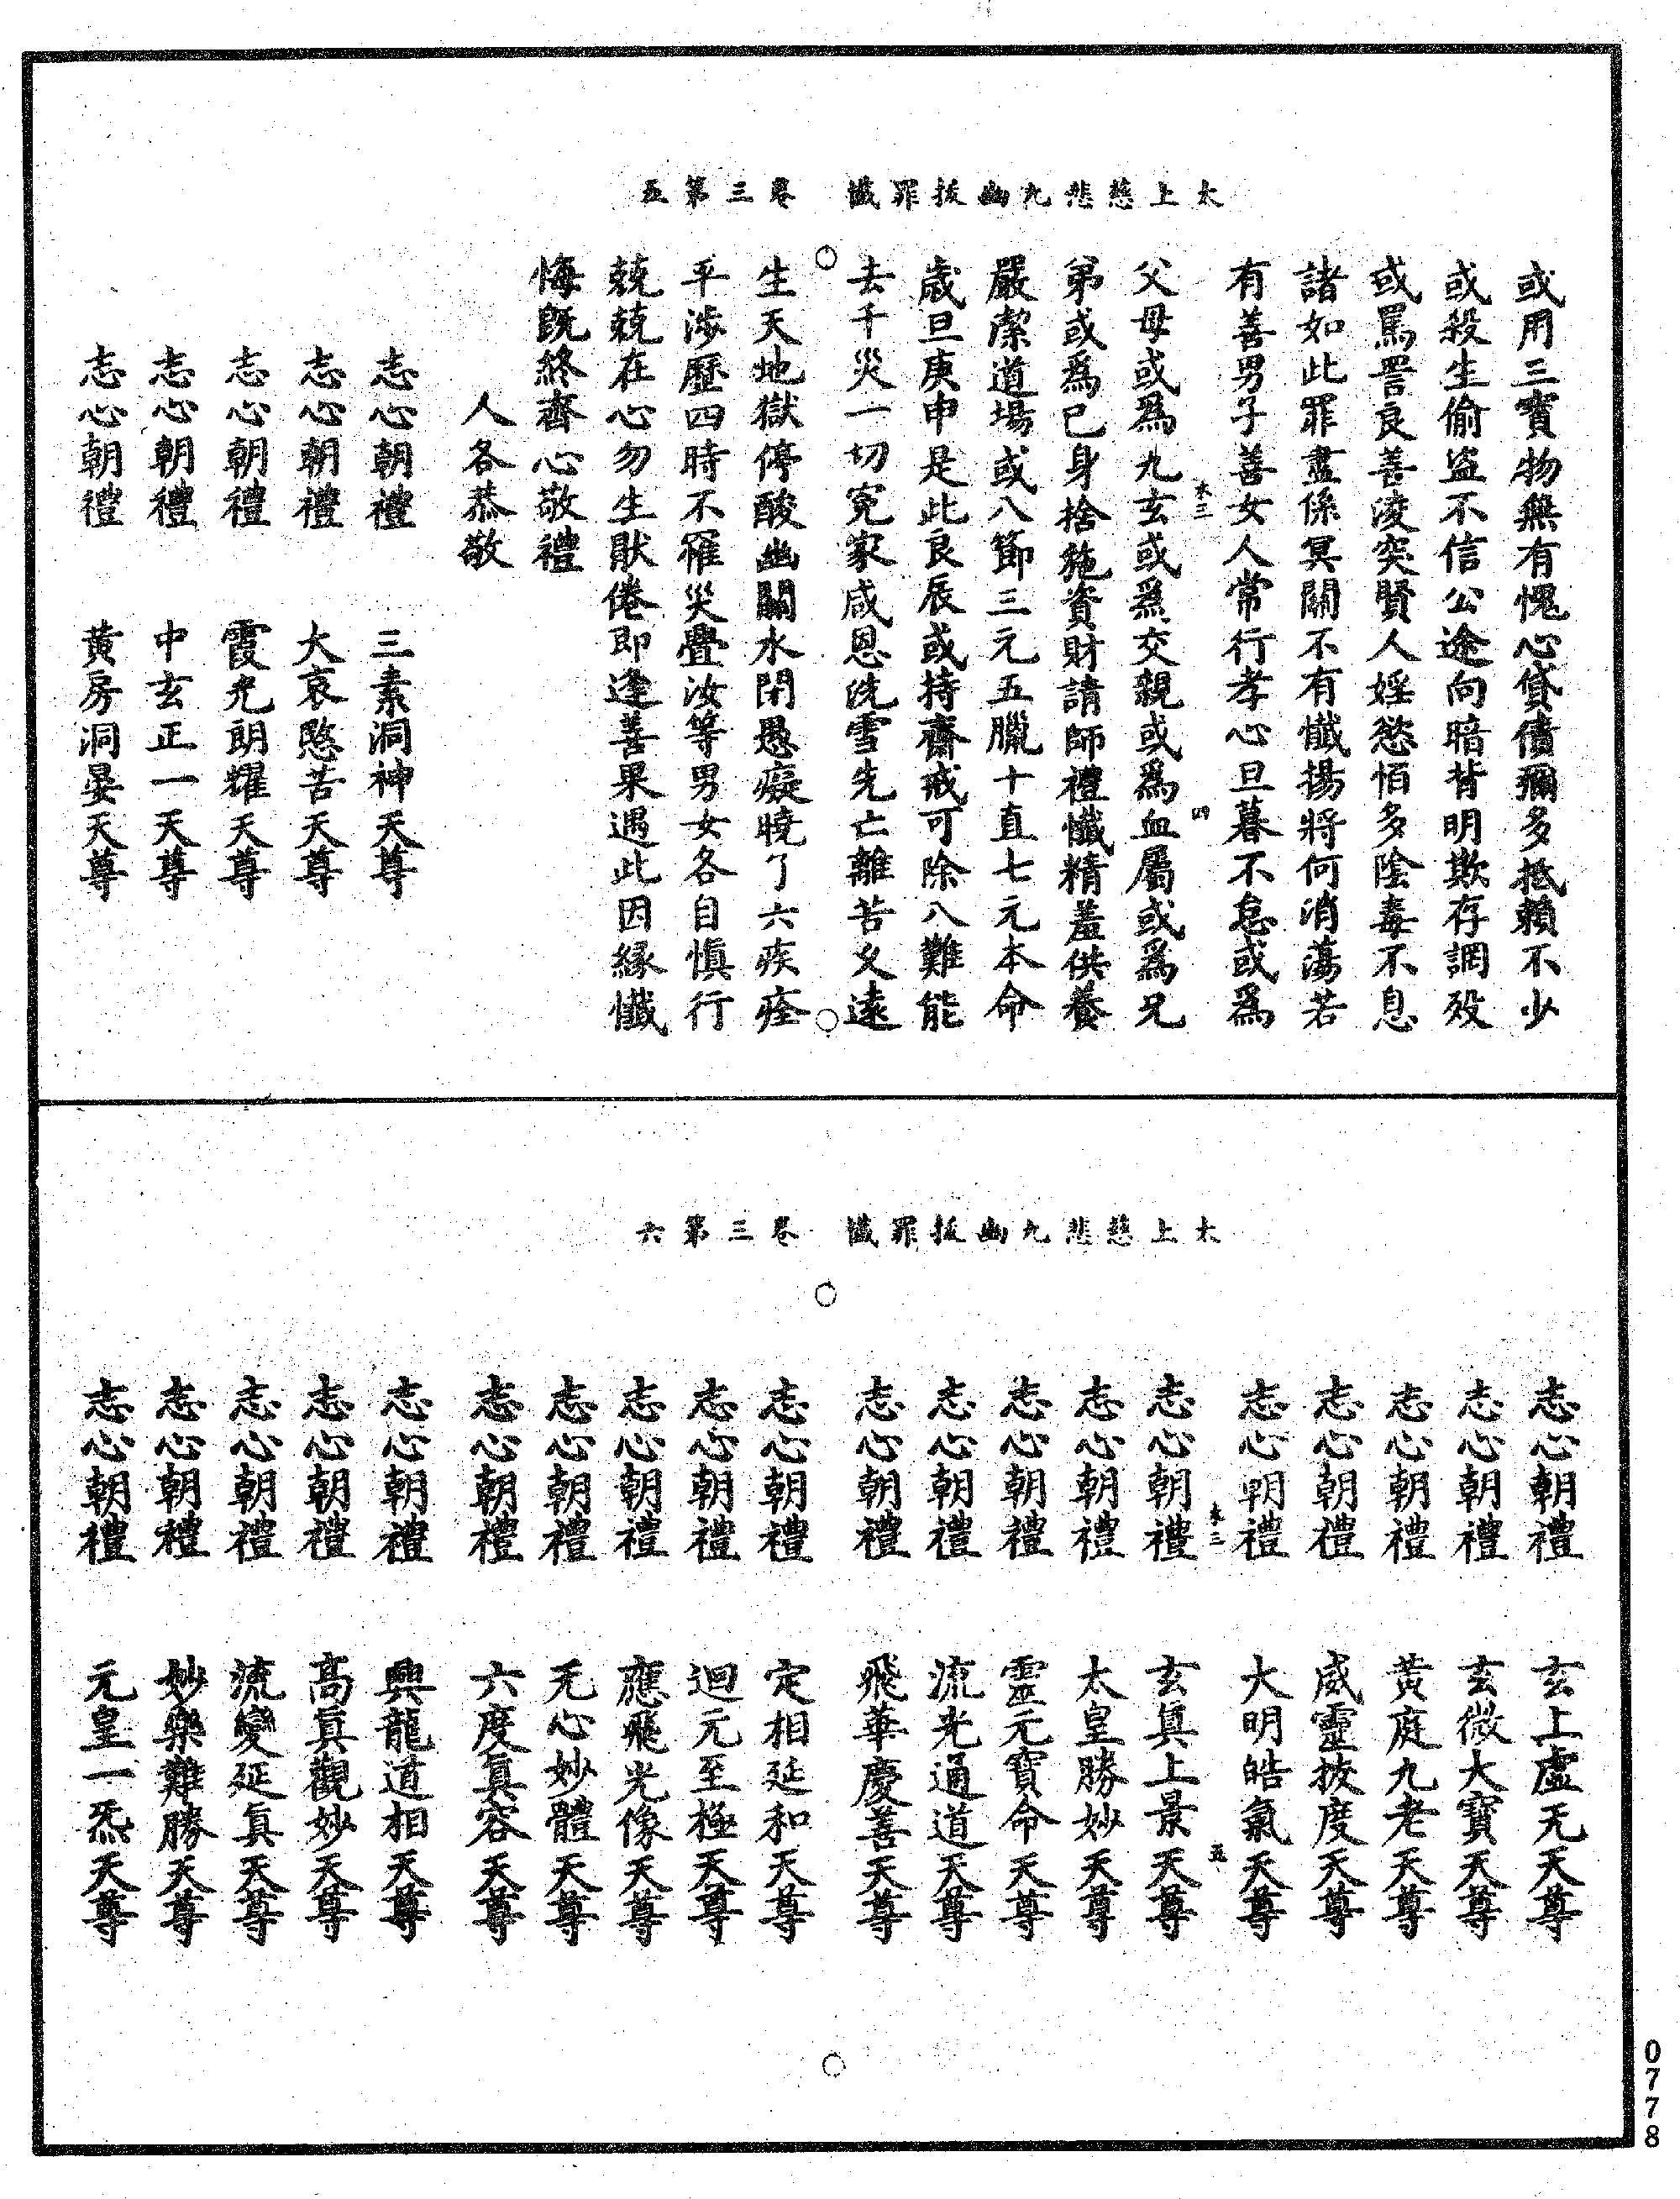 太上慈悲九幽拔罪懺　卷三第五
或用三寳物無有愧心貸債彌多抵賴不少
或殺生偷盜不信公途向暗背明欺存誷歿
或罵詈良善淩突賢人婬慾恡多陰毒不息
諸如此罪盡係冥關不有懺揚將何消蕩若
有善男子善女人常行孝心旦暮不怠或爲
父母或爲九玄或爲交親或爲血屬或爲兄
弟或爲己身捨施資財請師禮懺精羞供養
嚴潔道場或八節三元五臘十直七元本命
歲旦庚申是此良辰或持齋戒可除八難能
去千災一切冤家咸恩洗雪先亡離苦父遠
生天地獄停酸幽關水閉愚癡曉了六疾痊
平涉歷四時不罹災疊汝等男女各自慎行
兢兢在心勿生猒倦即逢善果遇此因緣懺
悔既終齊心敬禮
人各恭敬
志心朝禮　三素洞神天尊
志心朝禮　大哀愍苦天尊
志心朝禮　霞光朗耀天尊
志心朝禮　中玄正一天尊
志心朝禮　黃房洞晏天尊
太上慈悲九幽拔罪懺　卷三第六
志心朝禮　玄上虛无天尊
志心朝禮　玄微大寶天尊
志心朝禮　黃庭九老天尊
志心朝禮　威靈拔度天尊
志心朝禮　大明皓氣天尊
志心朝禮　玄真上景天尊
志心朝禮　太皇勝妙天尊
志心朝禮　靈元寶命天尊
志心朝禮　流光通道天尊
志心朝禮　飛華慶善天尊
志心朝禮　定相延和天尊
志心朝禮　迴元至極天尊
志心朝禮　應飛光像天尊
志心朝禮　无心妙體天尊
志心朝禮　六度真容天尊
志心朝禮　興龍道相天尊
志心朝禮　高真觀妙天尊
志心朝禮　流變延真天尊
志心朝禮　妙樂難勝天尊
志心朝禮　元皇一炁天尊
0778